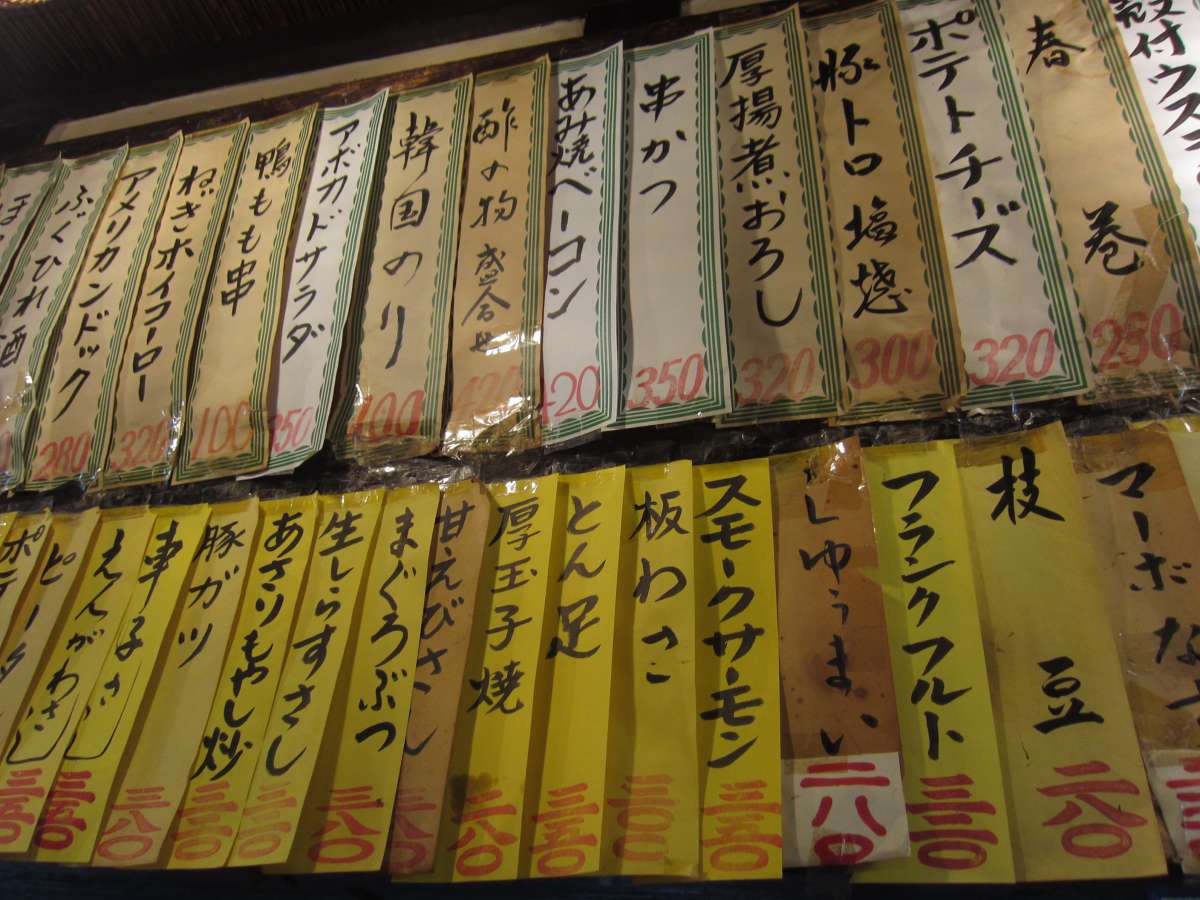 殻付ウズ
春巻 280
ポテトチーズ 320
豚トロ塩焼 300
厚揚煮おろし 320
串かつ 350
あみ焼ベーコン 420
酢の物盛合せ 420
韓国のり 400
アボカドサラダ 350
鴨もも串 100
ねぎホイコーロー 320
アメリカンドック 280
ふぐひれ酒
マーボなす
枝豆 二八〇
フランクフルト 三三〇
しゅうまい 二八〇
スモークサーモン 三五〇
板わさ
とん足 三五〇
厚玉子焼 二八〇
甘えびさし
まぐろぶつ 三八〇
生しらすさし 三三〇
あさりもやし炒 三三〇
豚ガツ 二八〇
さし 三五〇
えんがわさし 三五〇
ピータン